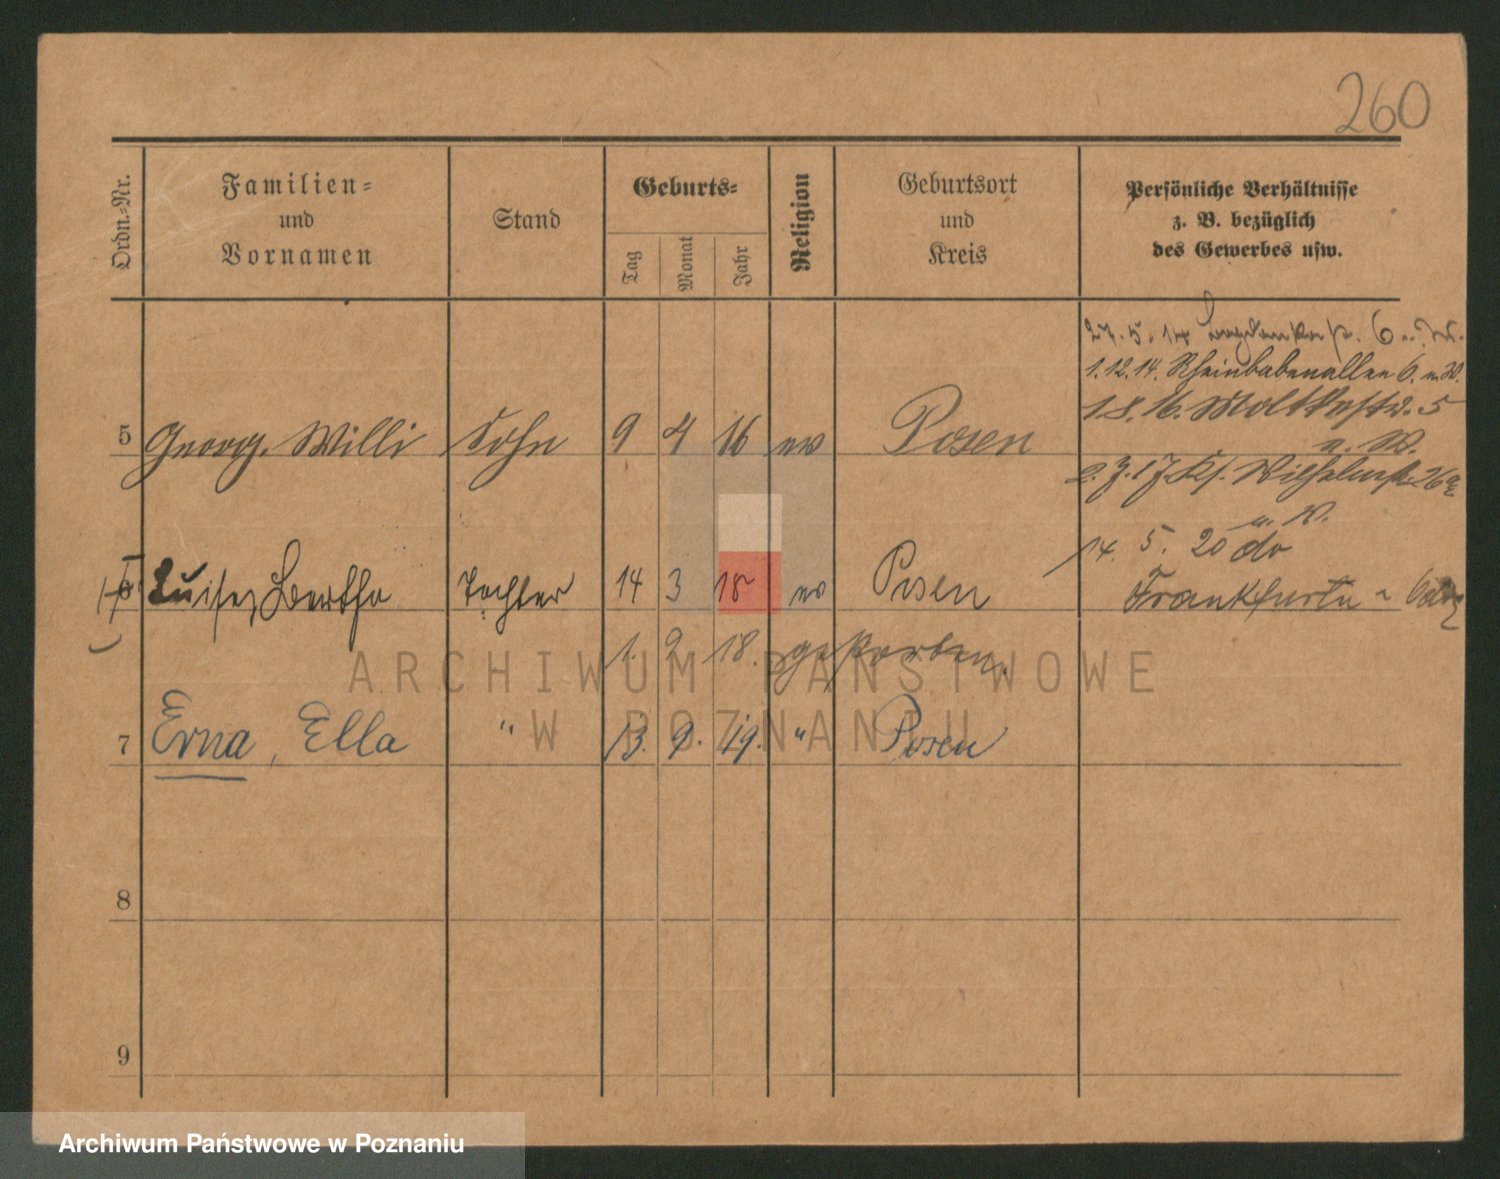 260
Ordn.-Nr.
Familien-
und
Vornamen
Stand
Geburts-
Tag
Monat
Jahr
Religion
Geburtsort
und
Kreis
Persönliche Verhältnisse
z. B. bezüglich
des Gewerbes usw.
27. 5. 14 6
1.12.14. Rheinbabenallee 6. u. W.
1.8.16. Moltkestr. 5
u. W.
5 Georg, Willi Sohn 9 4 16 ev Posen
Wilhelmstr. 26
u. W.
14. 5. 20 do
6 Luise, Bertha Tochter 14 3 18 ev Posen
Frankfurt
1. 9. 18. gestorben.
7 Erna, Ella " 13. 9. 19. " Posen
8
9
ARCHIWUM PAŃSTWOWE
W POZNANIU
Archiwum Państwowe w Poznaniu